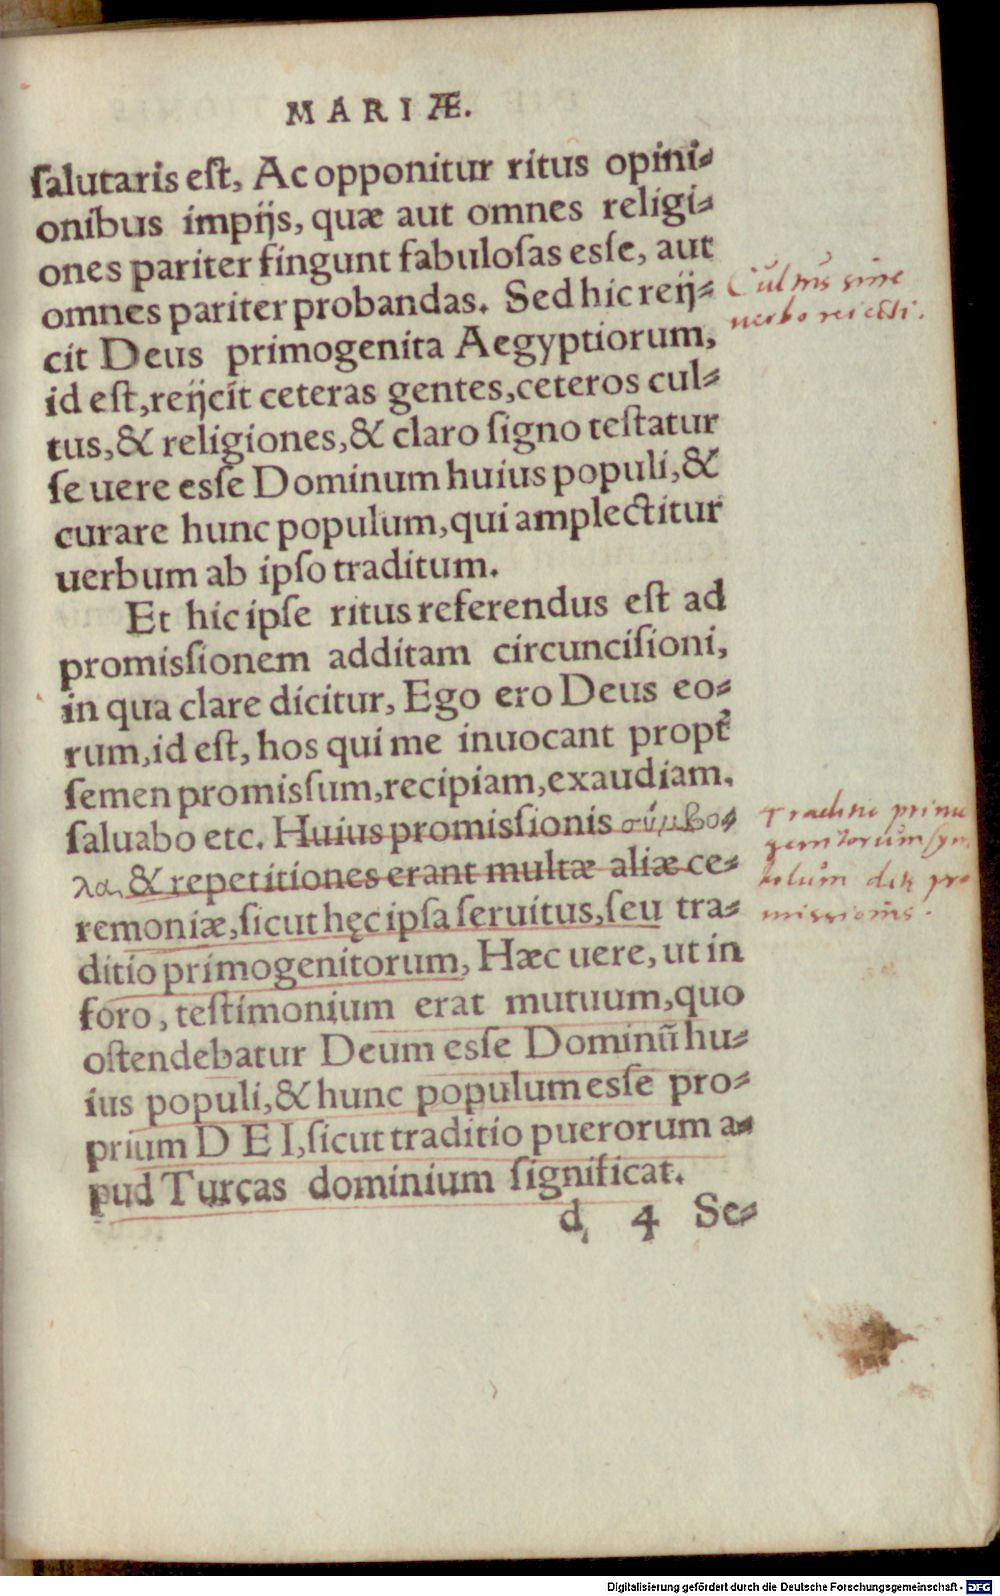 MARIÆ.
ſalutaris eſt, Ac opponitur ritus opini⸗
onibus impijs, quæ aut omnes religi⸗
ones pariter fingunt fabuloſas eſſe, aut
omnes pariter probandas. Sed hic reij⸗
cit Deus primogenita Aegyptiorum,
id eſt, reijcit ceteras gentes, ceteros cul⸗
tus, & religiones, & claro ſigno teſtatur
ſe uere eſſe Dominum huius populi, &
curare hunc populum, qui amplectitur
uerbum ab ipſo traditum.
Et hic ipſe ritus referendus eſt ad
promiſsionem additam circunciſioni,
in qua clare dicitur, Ego ero Deus eo⸗
rum, id eſt, hos qui me inuocant propt̓
ſemen promiſſum, recipiam, exaudiam,
ſaluabo etc. Huius promiſsionis σύμβο⸗
λα, & repetitiones erant multæ aliæ ce⸗
remoniæ, ſicut hęc ipſa ſeruitus, ſeu tra⸗
ditio primogenitorum, Hæc uere, ut in
foro, teſtimonium erat mutuum, quo
oſtendebatur Deum eſſe Dominũ hu⸗
ius populi, & hunc populum eſſe pro⸗
prium DEI, ſicut traditio puerorum a⸗
pud Turcas dominium ſignificat.
d 4 Se⸗
Cultus sine
uerbo reiecti.
Traditio primo
genitorum sym
bolum
missionis.
Digitalisierung gefördert durch die Deutsche Forschungsgemeinschaft - DFG